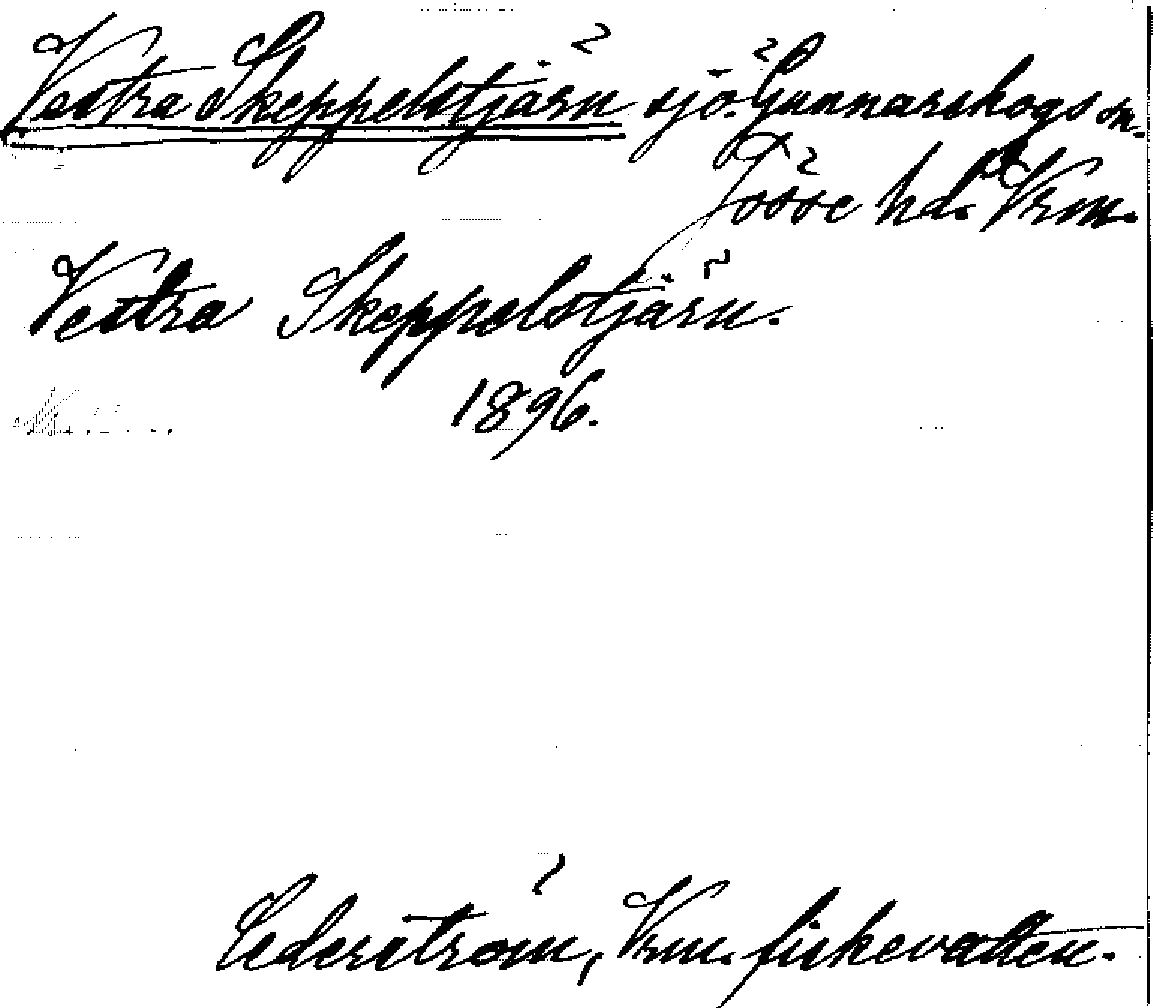 Vestra Skeppelstjärn sjö. Gunnarskogs sn.
Jösse hd. Vrm.
Vestra Skeppelstjärn.
1896.
Cederström, Vrm. fiskevatten.